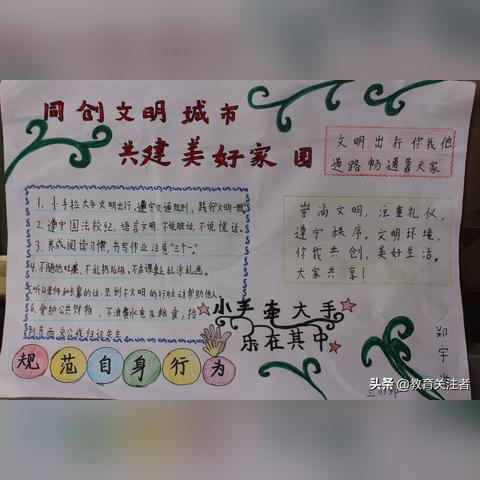 同创文明城市
共建美好家园
文明出行你我他
道路畅通靠大家
1. 小手拉大手文明出行,遵守交通规则,践行文明一
2. 遵守国法校纪,语言文明,不说脏话,不说谎话。
3. 养成阅读习惯,书写作业注意"三个一"。
4.不随地吐痰,不乱扔垃圾,不在课桌上乱涂乱画。
5.听老师和长辈的话,见到不文明的行为主动帮助他人。
6. 爱护公共财物,不浪费水电及粮食,拾
到东西交公或归还失主。
崇尚文明,注重礼仪,
遵守秩序。文明环境,
你我共创,美好生活。
大家共享!
小手牵大手
乐在其中
规范自身行为
郑宇
头条@教育关注者